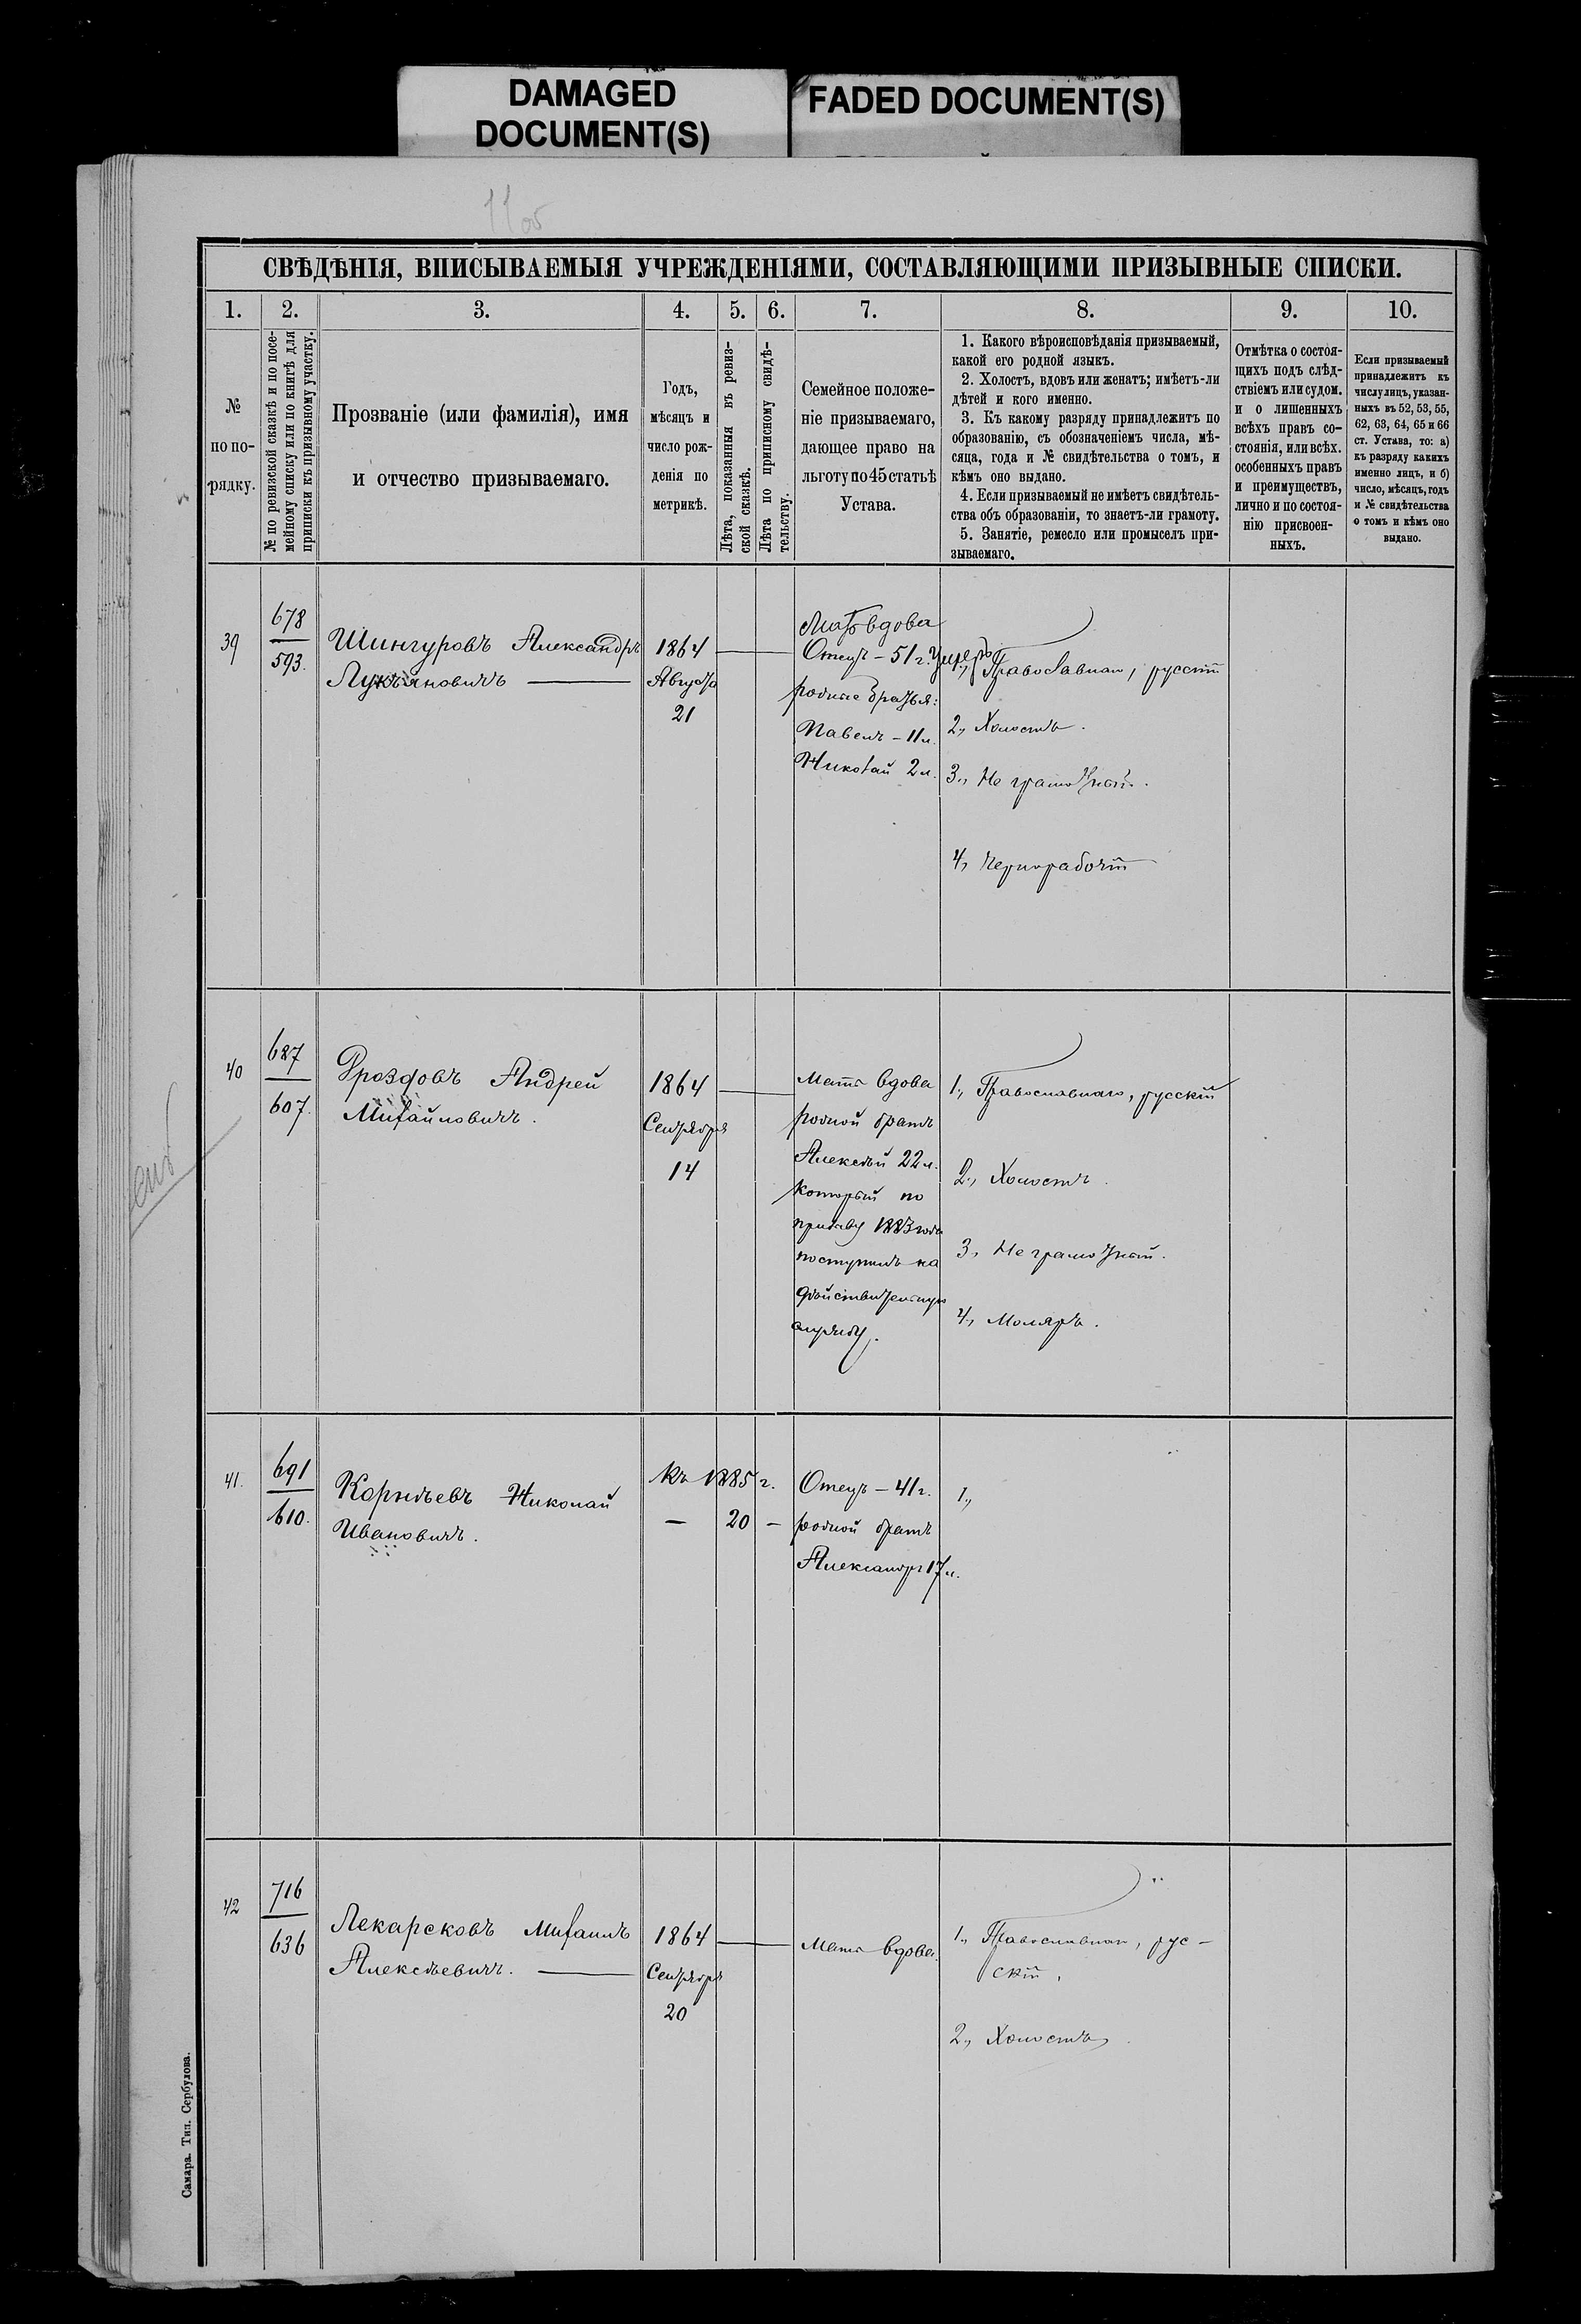 DAMAGED
DOCUMENT(S)
FADED DOCUMENT(S)
11об
СВѢДѢНІЯ, ВПИСЫВАЕМЫЯ УЧРЕЖДЕНІЯМИ, СОСТАВЛЯЮЩИМИ ПРИЗЫВНЫЕ СПИСКИ.
1. 2. 3. 4. 5. 6. 7. 8. 9. 10.
№
по по-
рядку.
№ по ревизской сказкѣ и по посе-
мейному списку или по книгѣ для
приписки къ призывному участку.
Прозваніе (или фамилія), имя
и отчество призываемаго.
Годъ,
мѣсяцъ и
число рож-
денія по
метрикѣ.
Лѣта, показанныя въ ревиз-
ской сказкѣ.
Лѣта по приписному свидѣ-
тельству.
Семейное положе-
ніе призываемаго,
дающее право на
льготу по 45 статьѣ
Устава.
1. Какого вѣроисповѣданія призываемый,
какой его родной языкъ.
2. Холостъ, вдовъ или женатъ; имѣетъ-ли
дѣтей и кого именно.
3. Къ какому разряду принадлежитъ по
образованію, съ обозначеніемъ числа, мѣ-
сяца, года и № свидѣтельства о томъ, и
кѣмъ оно выдано.
4. Если призываемый не имѣетъ свидѣтель-
ства объ образованіи, то знаетъ-ли грамоту.
5. Занятіе, ремесло или промыселъ при-
зываемаго.
Отмѣтка о состоя-
щихъ подъ слѣд-
ствіемъ или судом.
и о лишенныхъ
всѣхъ правъ со-
стоянія, или всѣх.
особенныхъ правъ
и преимуществъ,
лично и по состоя-
нію присвоен-
ныхъ.
Если призываемый
принадлежитъ къ
числу лицъ, указан-
ныхъ въ 52, 53, 55,
62, 63, 64, 65 и 66
ст. Устава, то: а)
къ разряду какихъ
именно лицъ, и б)
число, мѣсяцъ, годъ
и № свидѣтельства
о томъ и кѣмъ оно
выдано.
39
678
593.
Шингуровъ Александръ
Лукьяновичъ
1864
Августа
21
Мать вдова
Отецъ - 51 г. Умеръ
родные братья:
Павелъ - 11 л.
Николай 2 л.
1., Православнаго, русскій
2., Холостъ.
3., Не грамотный.
4, Чернорабочій
40
627
607.
Дроздовъ Андрей
Михайловичъ.
1864
Сентября
14
Мать вдова
родной братъ
Алексѣй 22 л.
который по
призыву 1883 года
поступилъ на
дѣйствительную
службу.
1., Православнаго, русскій
2., Холостъ.
3, Не грамотный.
4, Моляръ.
41.
691
610.
Корнѣевъ Николай
Ивановичъ.
Къ 1885 г.
— 20 —
Отецъ - 41 г.
родной братъ
Александръ 17 л.
1.,
42
716
636
Лекарсковъ Михаилъ
Алексѣевичъ.
1864
Сентября
20
Мать вдова.
1., Православнаго, рус-
скій.
2., Холостъ
Самара. Тип. Сербулова.